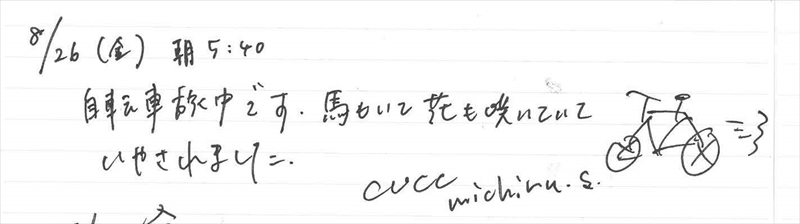 8/26 (金) 朝5:40
自転車旅中です. 馬もいて 花も咲いていて
いやされました.
CUCC michiru.s.